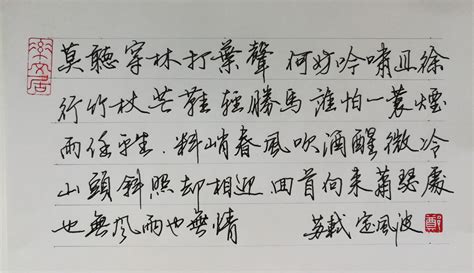 莫聽穿林打葉聲 何妨吟嘯且徐
行竹杖芒鞋輕勝馬誰怕一蓑煙
雨任平生.料峭春風吹酒醒微冷
山頭斜照却相迎 回首向来蕭瑟處
也無風雨也無情 苏軾定風波
鄭